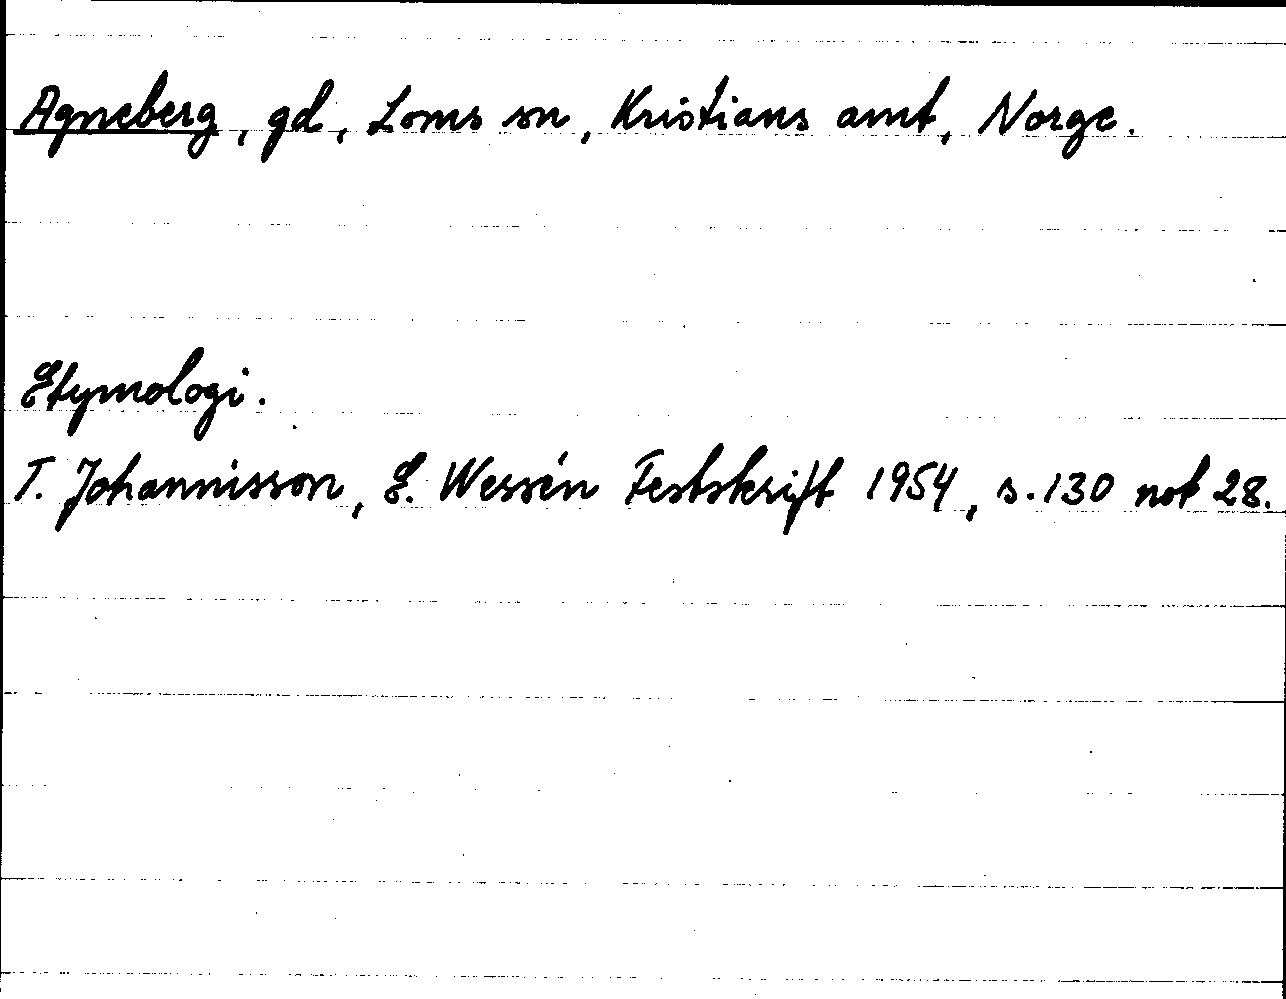 Agneberg, gd, Loms sn, Kristians amt, Norge.
Etymologi.
T. Johannisson, E. Wessén Festskrift 1954, s. 130 not 28.